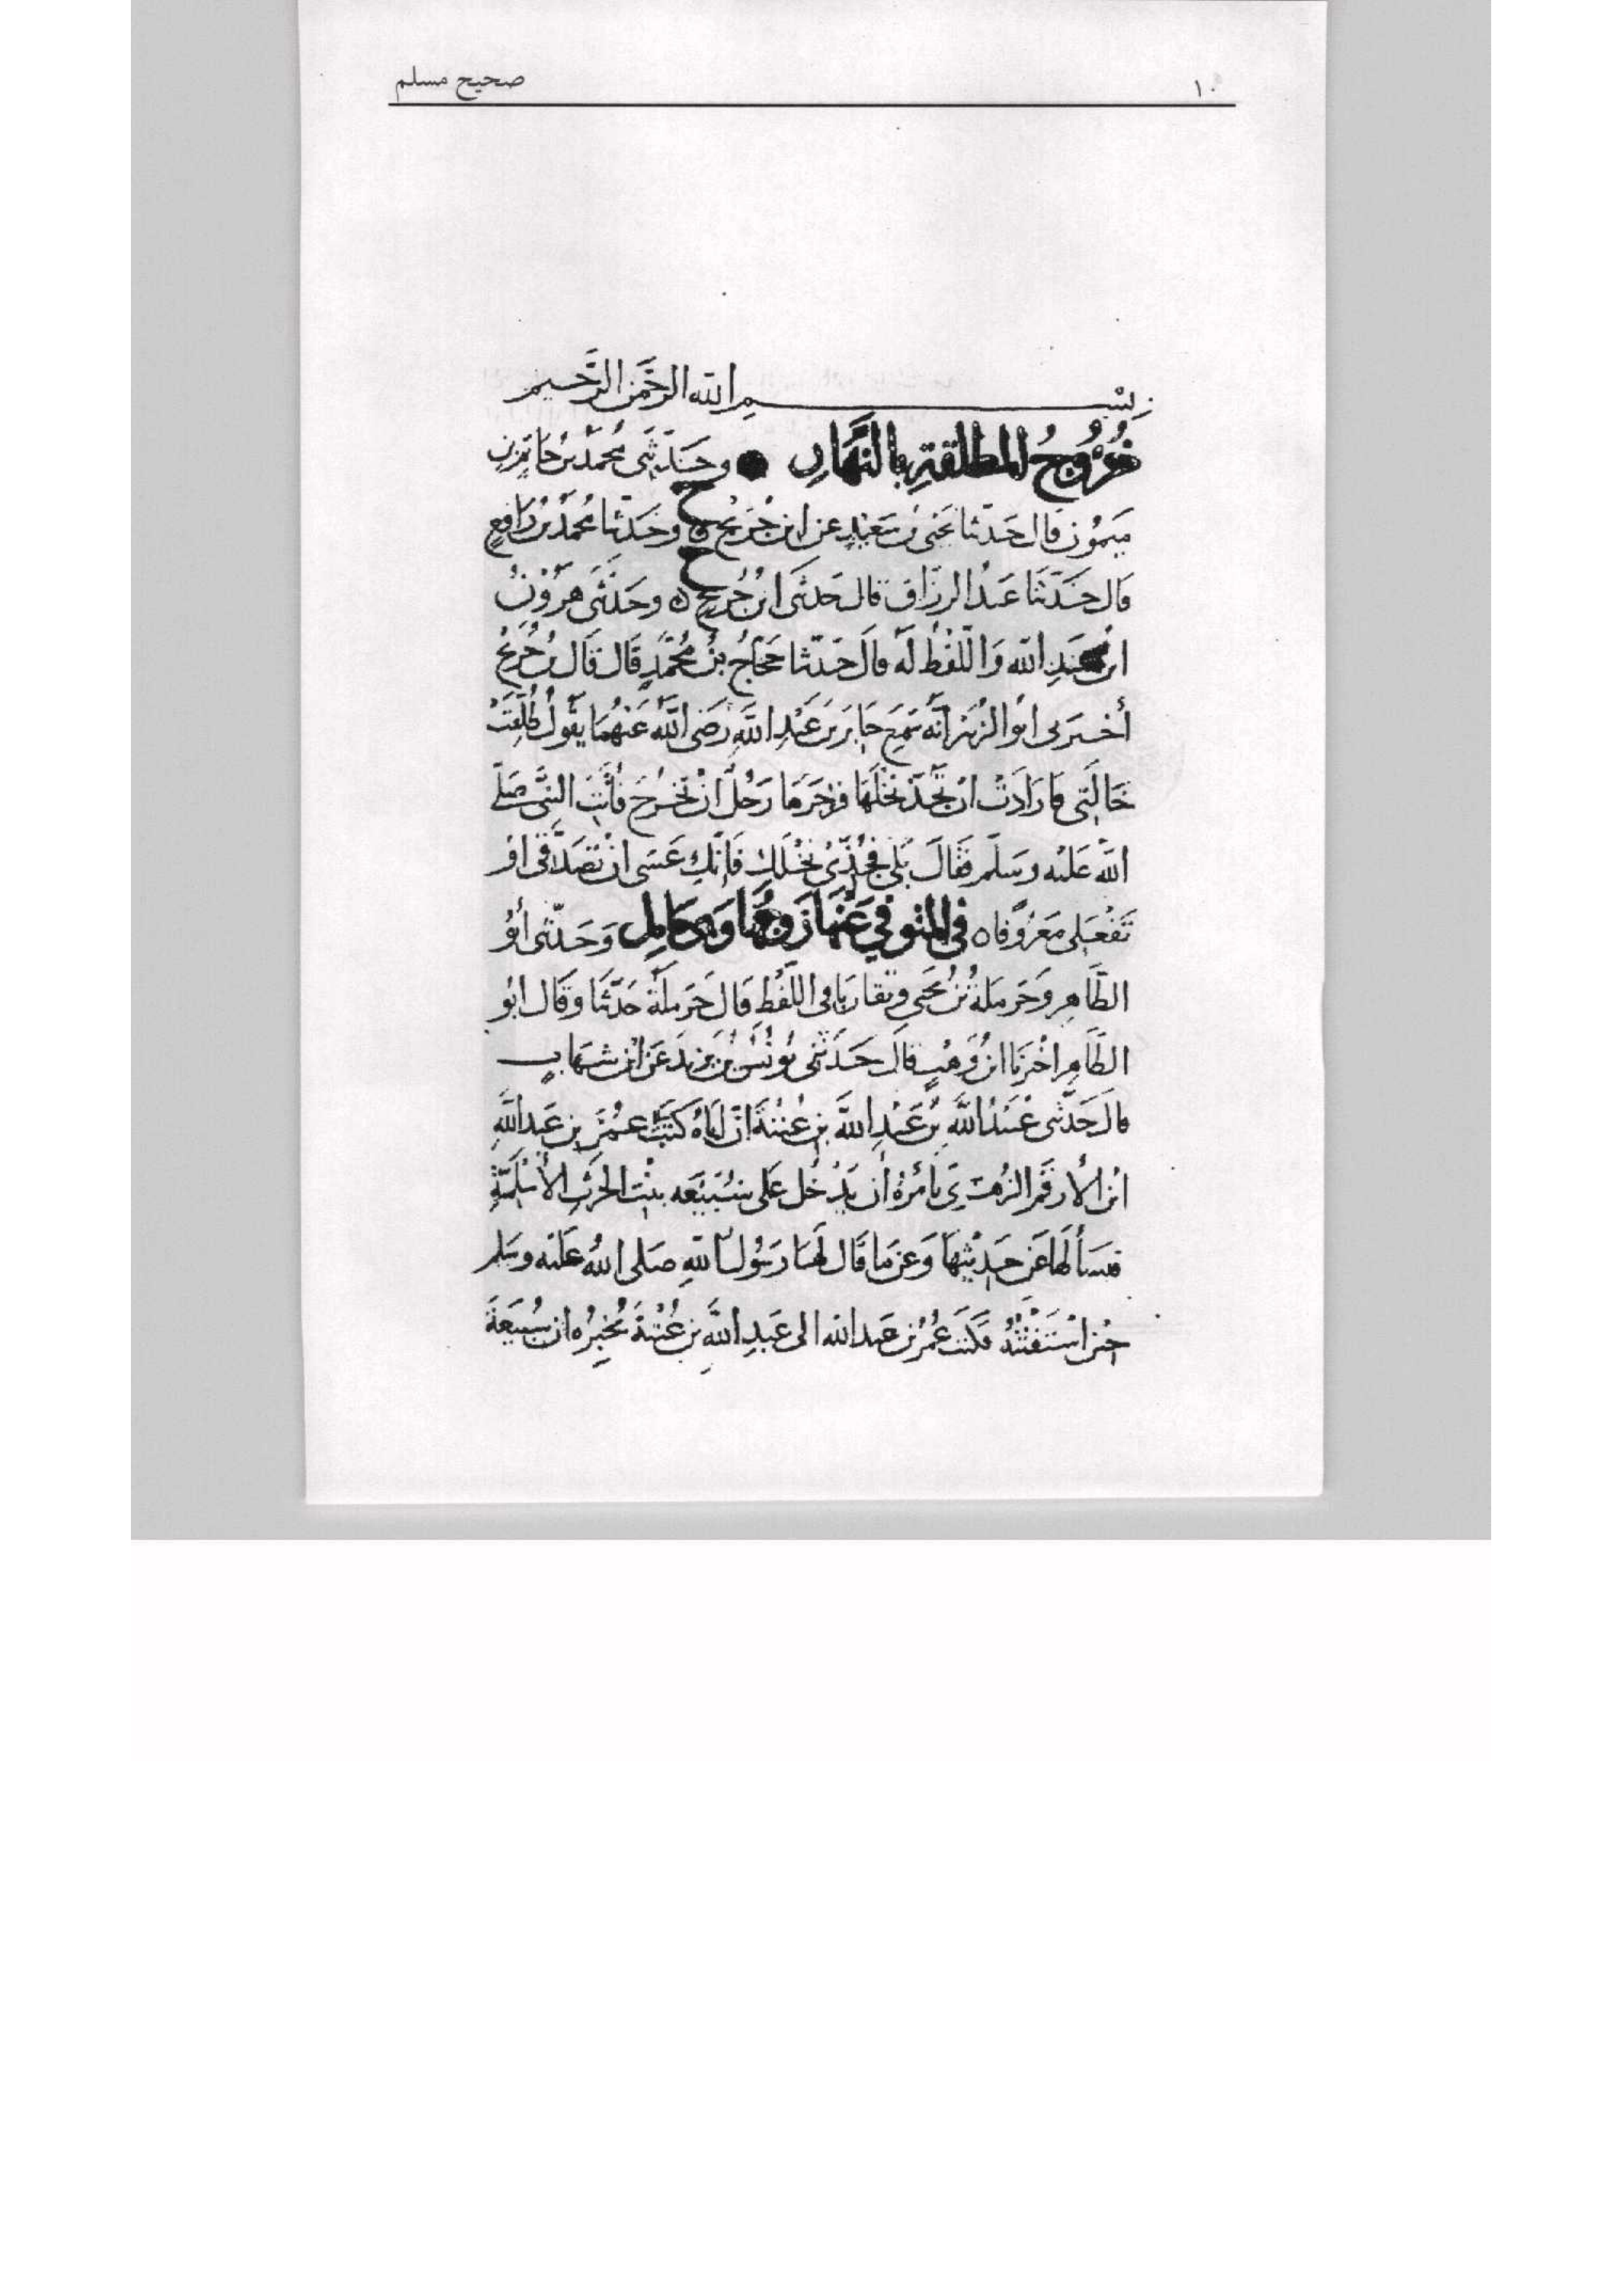 ١٠ صحيح مسلم
بِسْمِ الله الرَّحْمَنِ الرَّحِيم
خُرُوجُ المطلقةِ بالنَّهَارِ وحَدَّثَنِى مُحَمَّدُ بْنُ حَاتِمِ بْنِ
مَيمُون قَال حَدثنا يَحْيَى بْنُ سَعِيْدٍ عن ابنِ جُرَيجٍ ح وحَدثَنَا مُحَمَّدُ بْنُ رَافِعٍ
قَال حَدَّثَنَا عَبدُ الرزاق قال حَدثنى ابنُ جُرَيجٍ ح وحَدثَنِى هرُوْنُ
ابنُ عَبدِ الله وَاللَّفْظُ لَهُ قالَ حَدثنا حَجَّاجُ بنُ مُحَمَّدٍ قَال قَال بنُ جُرَيجٍ
أخبَرَنى ابُوا الزبَير أنَّه سَمِعَ جَابِرَ بنَ عَبْدِ اللَّهِ رَضى اللَّهُ عَنْهُمَا يَقُولُ طُلِّقَتْ
خَالَتِى فارَادَتْ ان تَجُدَّ نَخْلَهَا فزَجَرَهَا رَجُلٌ انْ تَخْرُجَ فأتَتِ النَّبِىَّ صَلَّى
اللَّهُ عَليْه وسَلّم فقَالَ بَلى فجُدِّى نَخْلَكِ فَإنَّكِ عَسَى انْ تَصَدَّقِى اوْ
تَفْعَلِى مَعْرُوفًا ه فى المتوفى عَنْهَا زَوجُهَا وَهى حَامِل وَحَدَّثنى أبُو
الطَّاهِرِ وحَرمَلَةُ بْنُ يَحيَى وتقارَبَا فى اللَّفْظِ قَال حَرمَلَةُ حَدثَنَا وقَال ابُو
الطَّاهِرِ اخْبَرنَا ابنُ وَهْبٍ قالَ حَدَّثَنِى يُونُسُ بْنُ يزيدَ عَن ابْنِ شهَابٍ
قال حَدَّثَنِى عُبَيْدُ اللَّهِ بْنُ عَبْدِ اللَّهِ بنِ عُتْبَةَ انَّ أبَاهُ كَتَبَ عمُرَ بنِ عَبدِ اللَّهِ
ابن الأرقَم الزُّهْرِى يَأمُرُهُ أن يَدْخُل عَلى سُبَيْعَه بِنْتِ الحَرثِ الأَسْلَمِيَّةِ
فيَسألَهَا عَن حَدِيْثِهَا وَعَن مَا قَال لَهَا رَسُولُ اللَّهِ صَلى اللهُ عَليْه وسَلم
حِيْن اسْتَفْتَتْهُ فكَتَبَ عُمَرُ بْنُ عَبدِ الله الى عَبدِ اللَّهِ بن عُتْبَةَ يُخبِرُهُ ان سُبَيْعَةَ